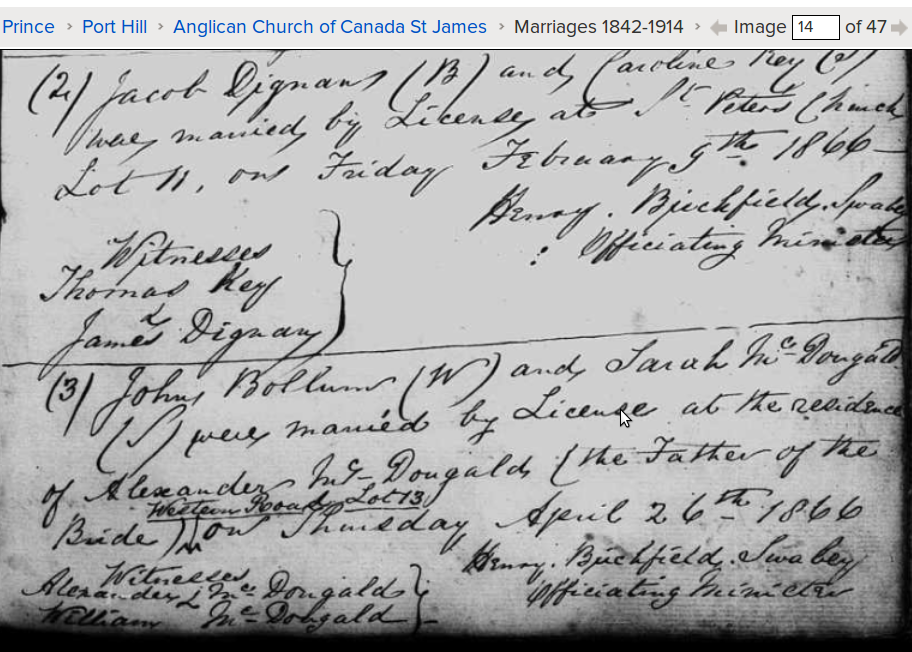 Prince › Port Hill › Anglican Church of Canada St James › Marriages 1842-1914 › Image 14 of 47
(2) Jacob Dignan (B) and Caroline Key (S)
were married by License at St. Peters Church
Lot 11, on Friday February 9th 1866
Henry. Birchfield. Swabey
Officiating Minister
Witnesses
Thomas Key
&
James Dignan
(3) John Bollum (W) and Sarah Mc Dougald
(S) were married by License at the residence
of Alexander Mc Dougald (the Father of the
Western Road Lot 13
Bride) on Thursday April 26th 1866
Henry. Birchfield. Swabey
Officiating Minister
Witnesses
Alexander Mc Dougald
&
William Mc Dougald